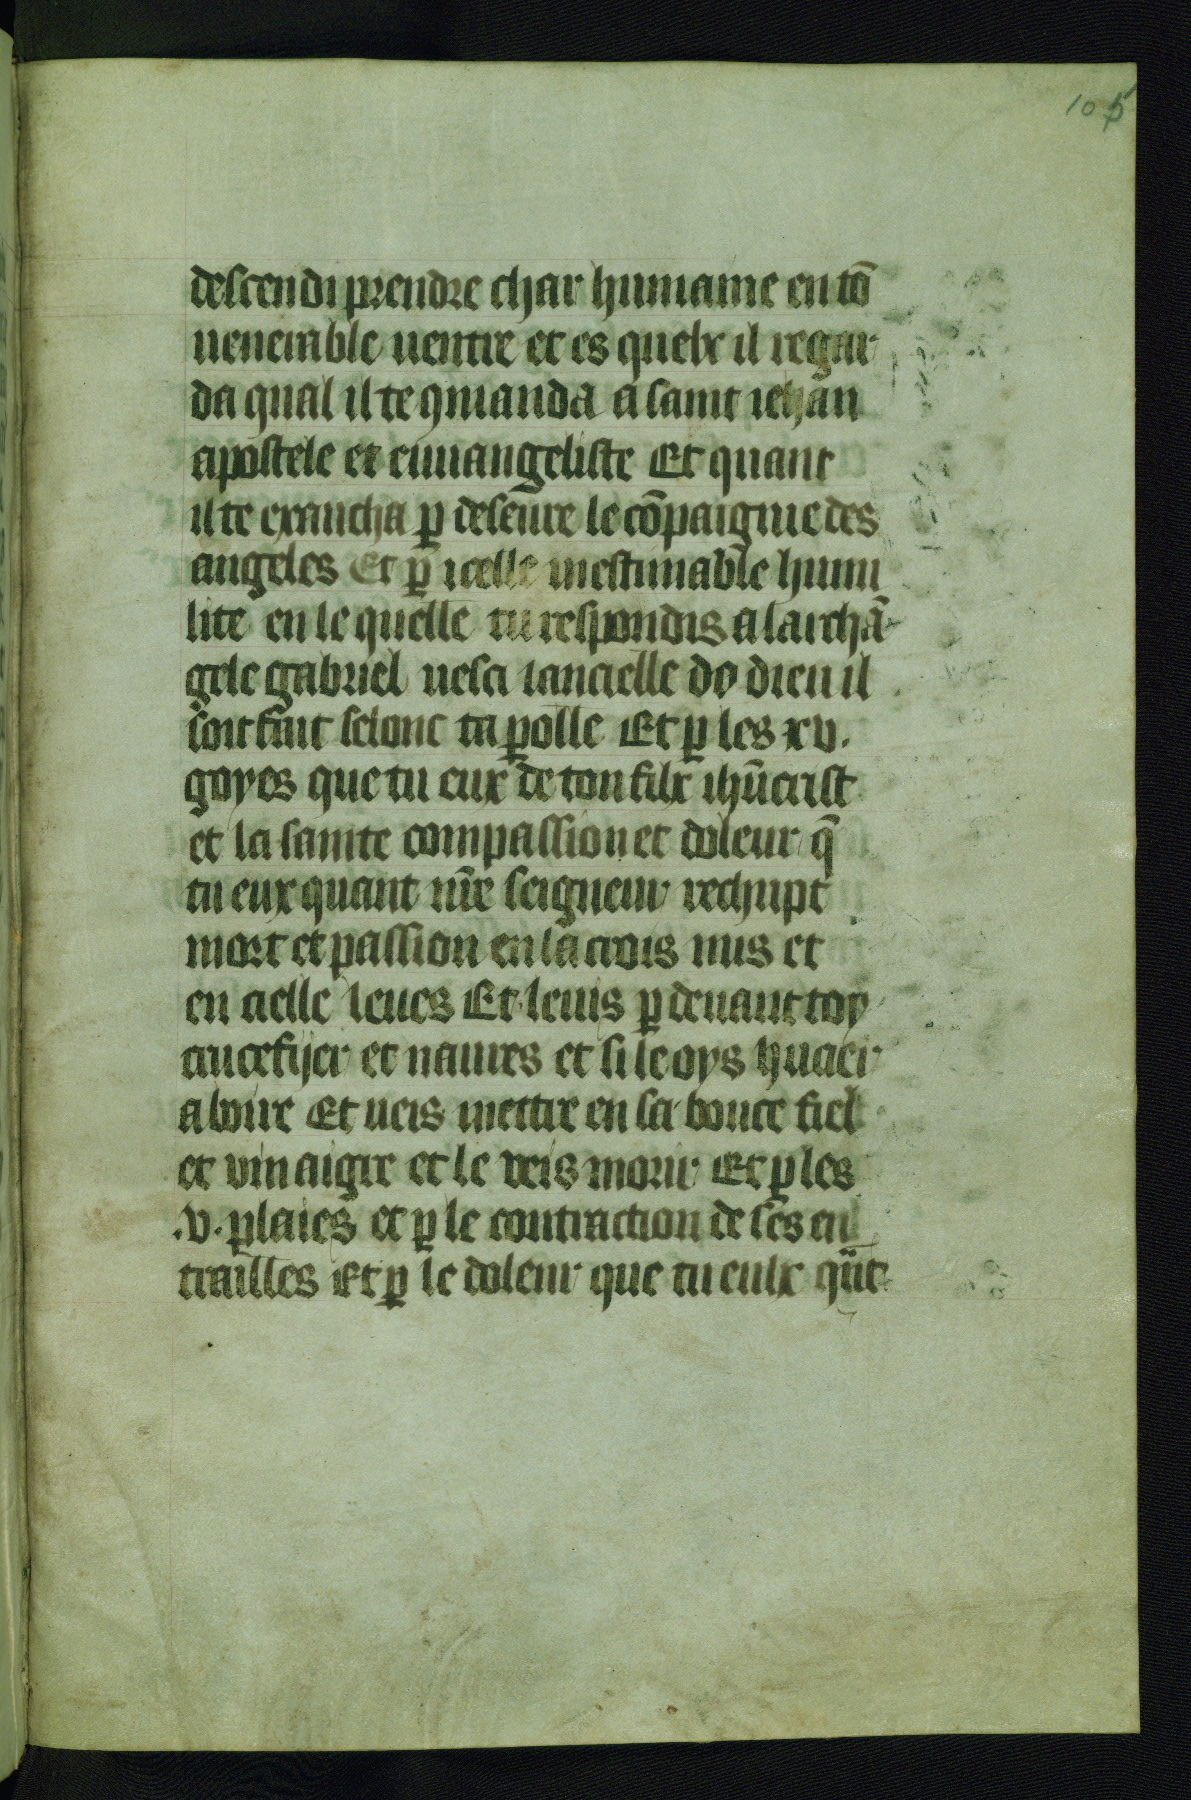 105
descendi prendre char humaine en tō
venerable ventre et es quelx il regar
da qual il te ꝯmanda a saint iehan
apostele et euuangeliste Et quant
il te exaucha ꝑ deseure le cōpaignie des
angeles Et ꝑ icelle inestimable humi
lite en le quelle tu respondis a larchā
gele gabriel vesci lancielle do dieu il
soit fait selonc ta ꝑolle Et ꝑ les xv.
goyes que tu eux de ton filx ihūcrist
et la sainte compassion et doleur q̄
tu eux quant nr̄e seigneur rechupt
mort et passion en la crois nus et
en cielle leues Et leuis ꝑ deuant toy
crucefijer et naures et si le oys huci​er
a boire Et veis mettre en sa bouce fiel
et vin aigre et le veis morir Et ꝑ les
.v. plaies et ꝑ le contraction de ses en
trailles Et ꝑ le doleur que tu eulx qūt